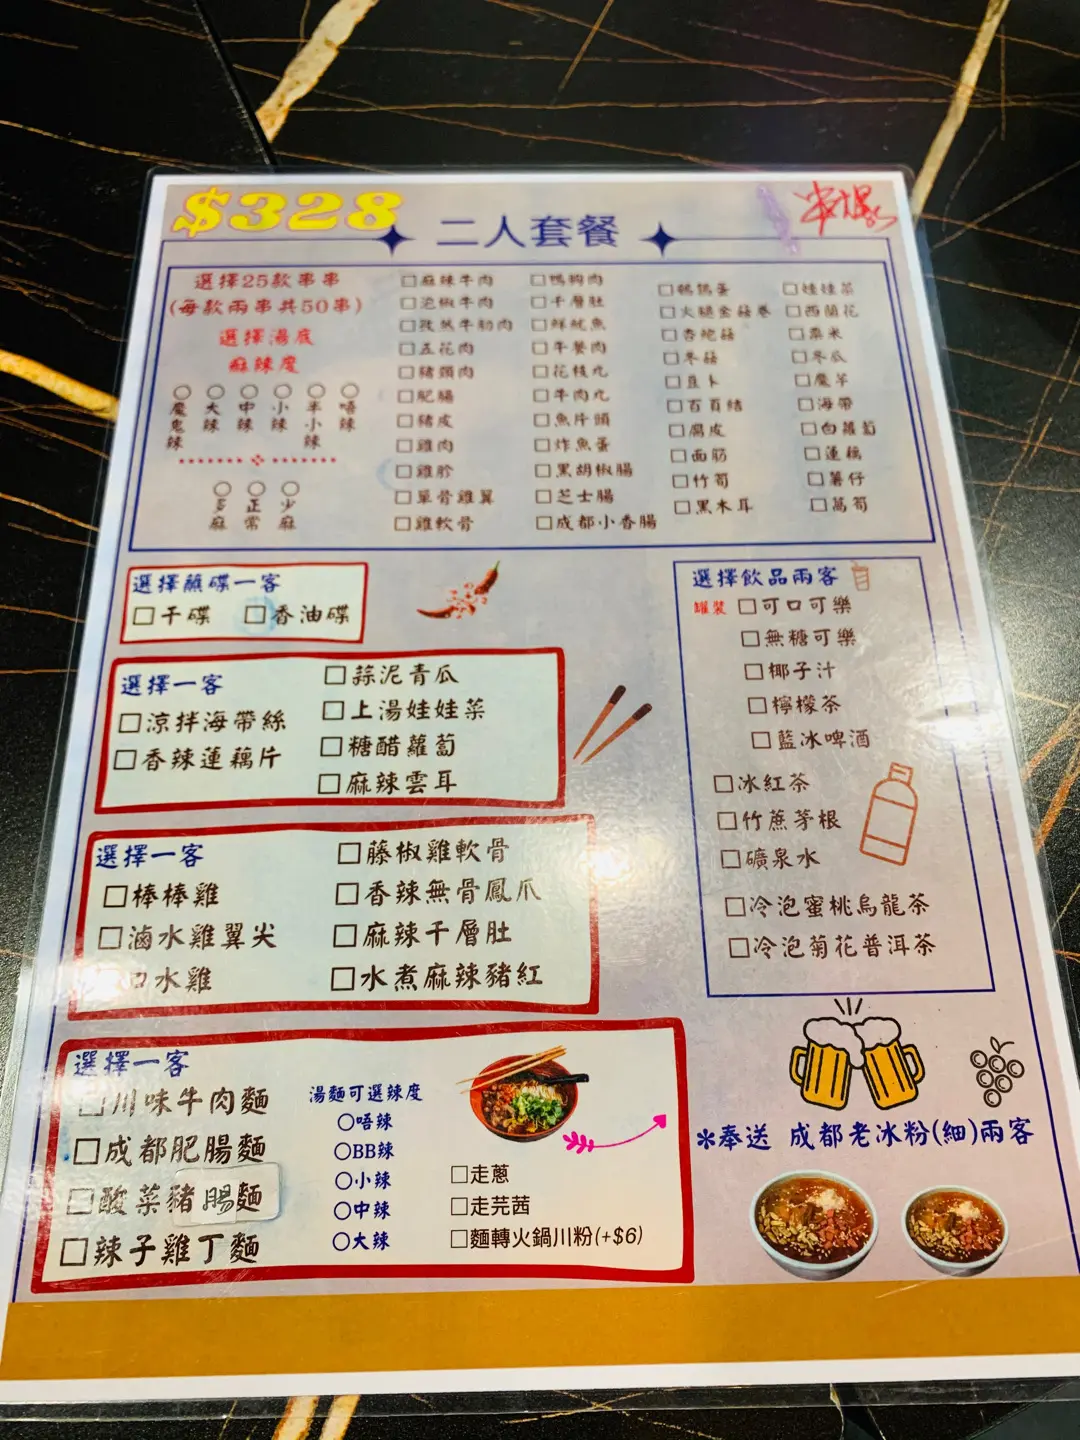 $328
二人套餐
串爆
選擇25款串串
(每款兩串共50串)
選擇湯底
麻辣度
○魔鬼辣
○大辣
○中辣
○小辣
○半小辣
○唔辣
○多麻
○正常
○少麻
□麻辣牛肉
□泡椒牛肉
□孜然牛肋肉
□五花肉
□豬頸肉
□肥腸
□豬皮
□雞肉
□雞肶
□單骨雞翼
□雞軟骨
□鴨胸肉
□千層肚
□鮮魷魚
□午餐肉
□花枝丸
□牛肉丸
□魚片頭
□炸魚蛋
□黑胡椒腸
□芝士腸
□成都小香腸
□鵪鶉蛋
□火腿金菇卷
□杏鮑菇
□冬菇
□豆卜
□百頁結
□腐皮
□面筋
□竹筍
□黑木耳
□娃娃菜
□西蘭花
□粟米
□冬瓜
□魔芋
□海帶
□白蘿蔔
□蓮藕
□薯仔
□萵筍
選擇蘸碟一客
□干碟 □香油碟
選擇一客
□涼拌海帶絲
□香辣蓮藕片
□蒜泥青瓜
□上湯娃娃菜
□糖醋蘿蔔
□麻辣雲耳
選擇一客
□棒棒雞
□滷水雞翼尖
口水雞
□藤椒雞軟骨
□香辣無骨鳳爪
□麻辣千層肚
□水煮麻辣豬紅
選擇一客
□川味牛肉麵
□成都肥腸麵
□酸菜豬腸麵
□辣子雞丁麵
湯麵可選辣度
○唔辣
○BB辣
○小辣
○中辣
○大辣
□走蔥
□走芫茜
□麵轉火鍋川粉(+$6)
選擇飲品兩客
罐裝 □可口可樂
□無糖可樂
□椰子汁
□檸檬茶
□藍冰啤酒
□冰紅茶
□竹蔗茅根
□礦泉水
□冷泡蜜桃烏龍茶
□冷泡菊花普洱茶
*奉送 成都老冰粉(細)兩客